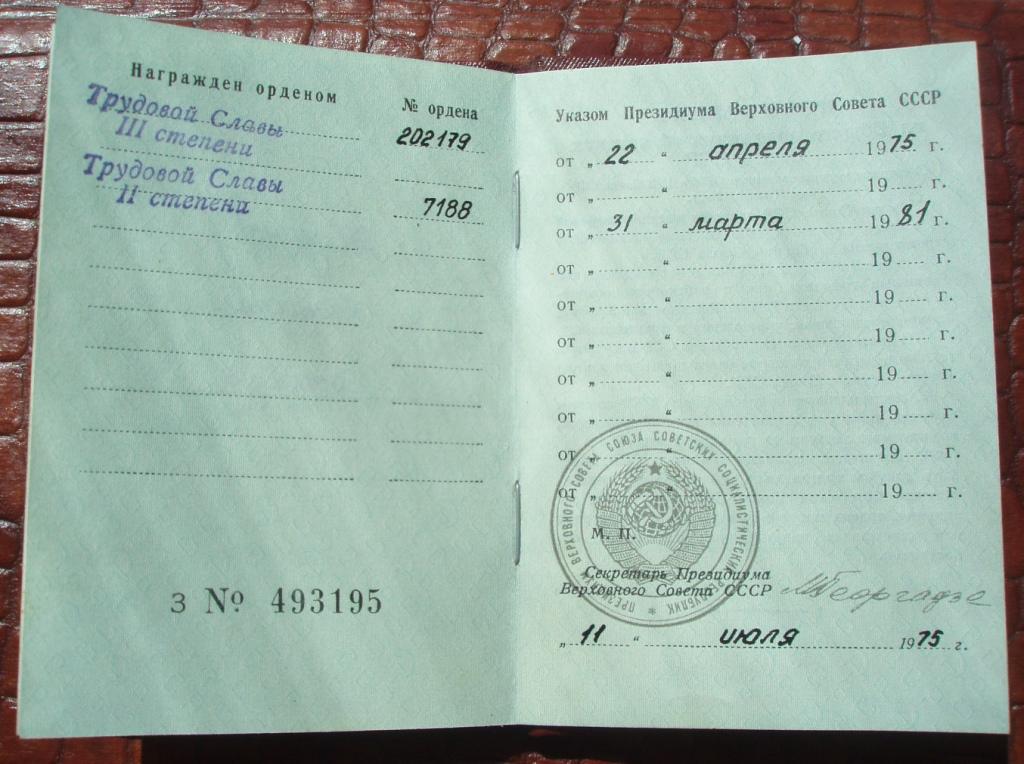 Награжден орденом
№ ордена
Трудовой Славы
III степени
202179
Трудовой Славы
II степени
7188
З № 493195
Указом Президиума Верховного Совета СССР
от „ 22 “ апреля 1975 г.
от „ “ 19 г.
от „ 31 “ марта 1981 г.
от „ “ 19 г.
от „ “ 19 г.
от „ “ 19 г.
от „ “ 19 г.
от „ “ 19 г.
от „ “ 19 г.
от „ “ 19 г.
ПРЕЗИДИУМ ВЕРХОВНОГО СОВЕТА СОЮЗА СОВЕТСКИХ СОЦИАЛИСТИЧЕСКИХ РЕСПУБЛИК
М. П.
Секретарь Президиума
Верховного Совета СССР
МГеоргадзе
„ 11 “ июля 1975 г.